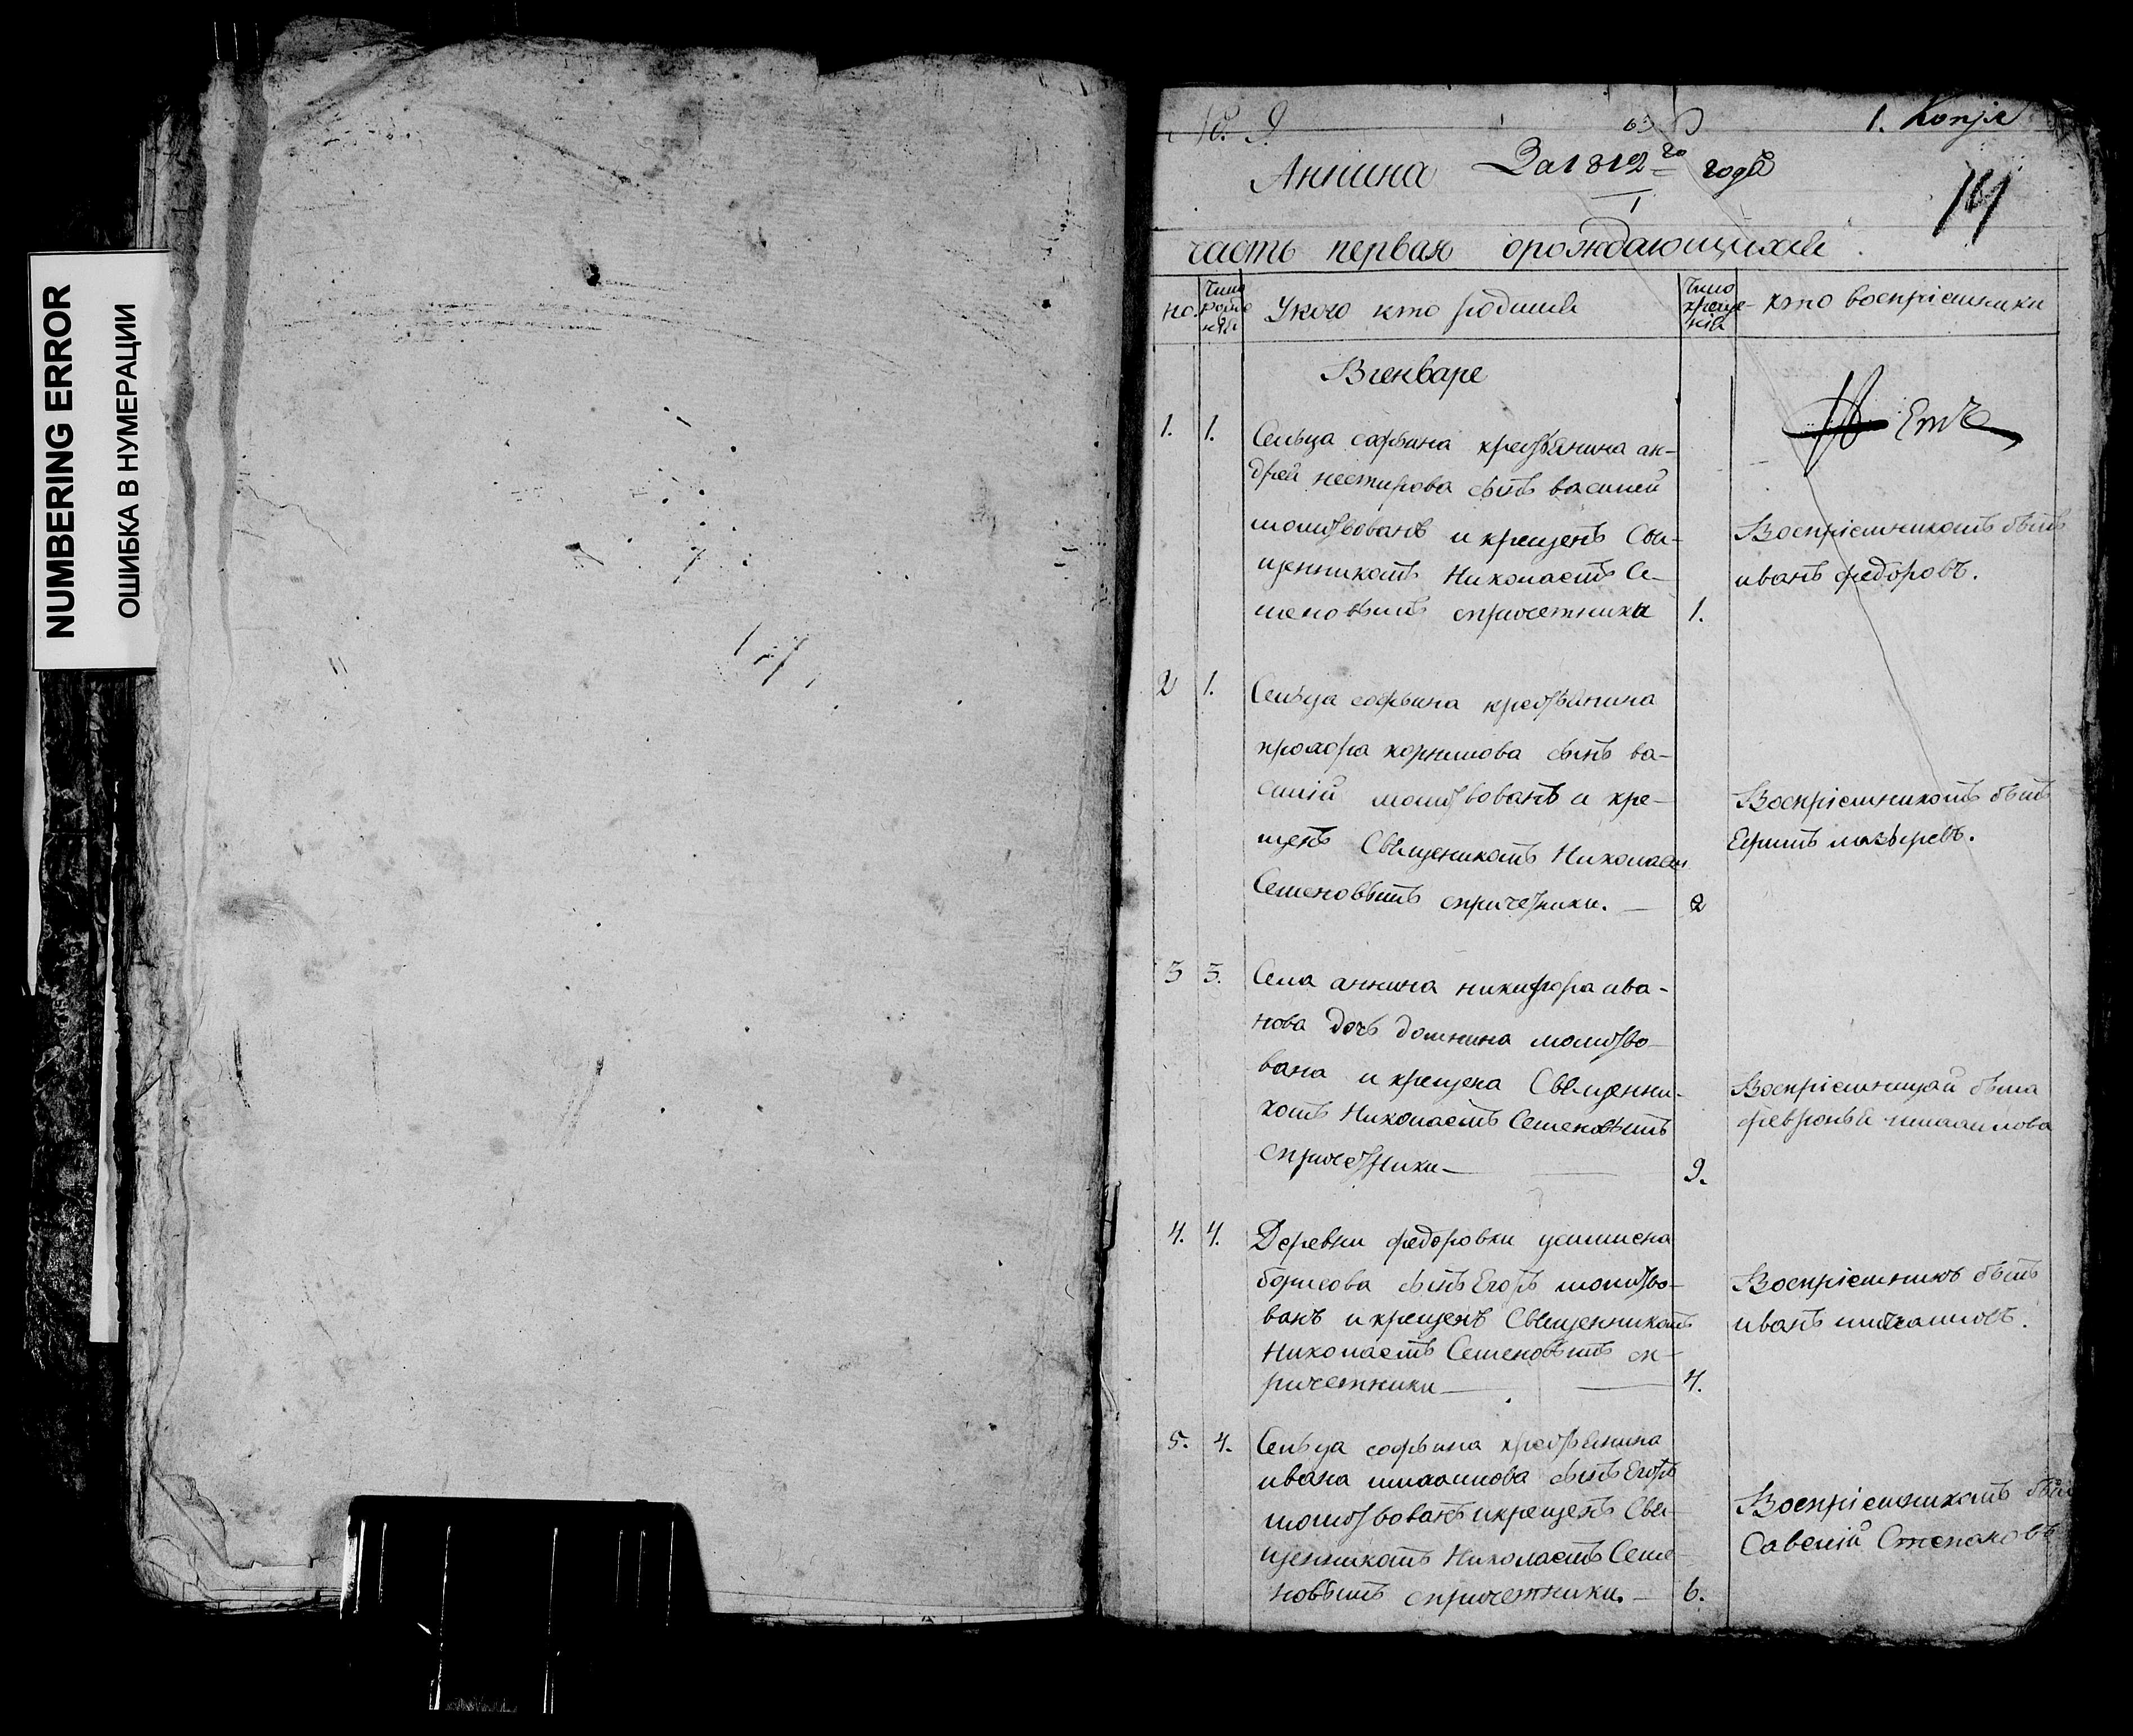 NUMBERING ERROR
ОШИБКА В НУМЕРАЦИИ
No. 9
1. Копiя
Аннина За 1812го годъ
1
часть первая орождающихся.
но.
Число рожде нiя
Укого кто родился
Число креще нiя
кто воспрiемники
Вгенваре
1. 1. Сельца софьина крестьянина ан-
дрей нестирова сынъ василей
молитвованъ и крещенъ Свя-
щенникомъ Николаемъ Се-
меновымъ спричетники 1.
Воспрiемникомъ былъ
иванъ федоровъ.
2 1. Сельца софьина крестьянина
прохора корнилова сынъ ва-
силiй молитвованъ и кре-
щенъ Священикомъ Николаем
Семеновымъ спричетники. 2
Воспрiемникомъ былъ
3 3. Села аннина никифора ива-
нова дочь домнина молитво-
вана и крещена Священни-
комъ Николаемъ Семеновымъ
спричетники 9.
Воспрiемницай была
февронья
4. 4. Деревни федоровки
борисова сынъ Егоръ молитво-
ванъ и крещенъ Священникомъ
Николаемъ Семеновымъ сп-
ричетники 4.
Воспрiемникъ былъ
иванъ
5. 4. Сельца софьина крестьянина
ивана сынъ Егоръ
молитвованъ и крещенъ Свя-
щенникомъ Николаемъ Семе
новымъ спричетники. 6.
Воспрiемникомъ был
Савелiй Степановъ